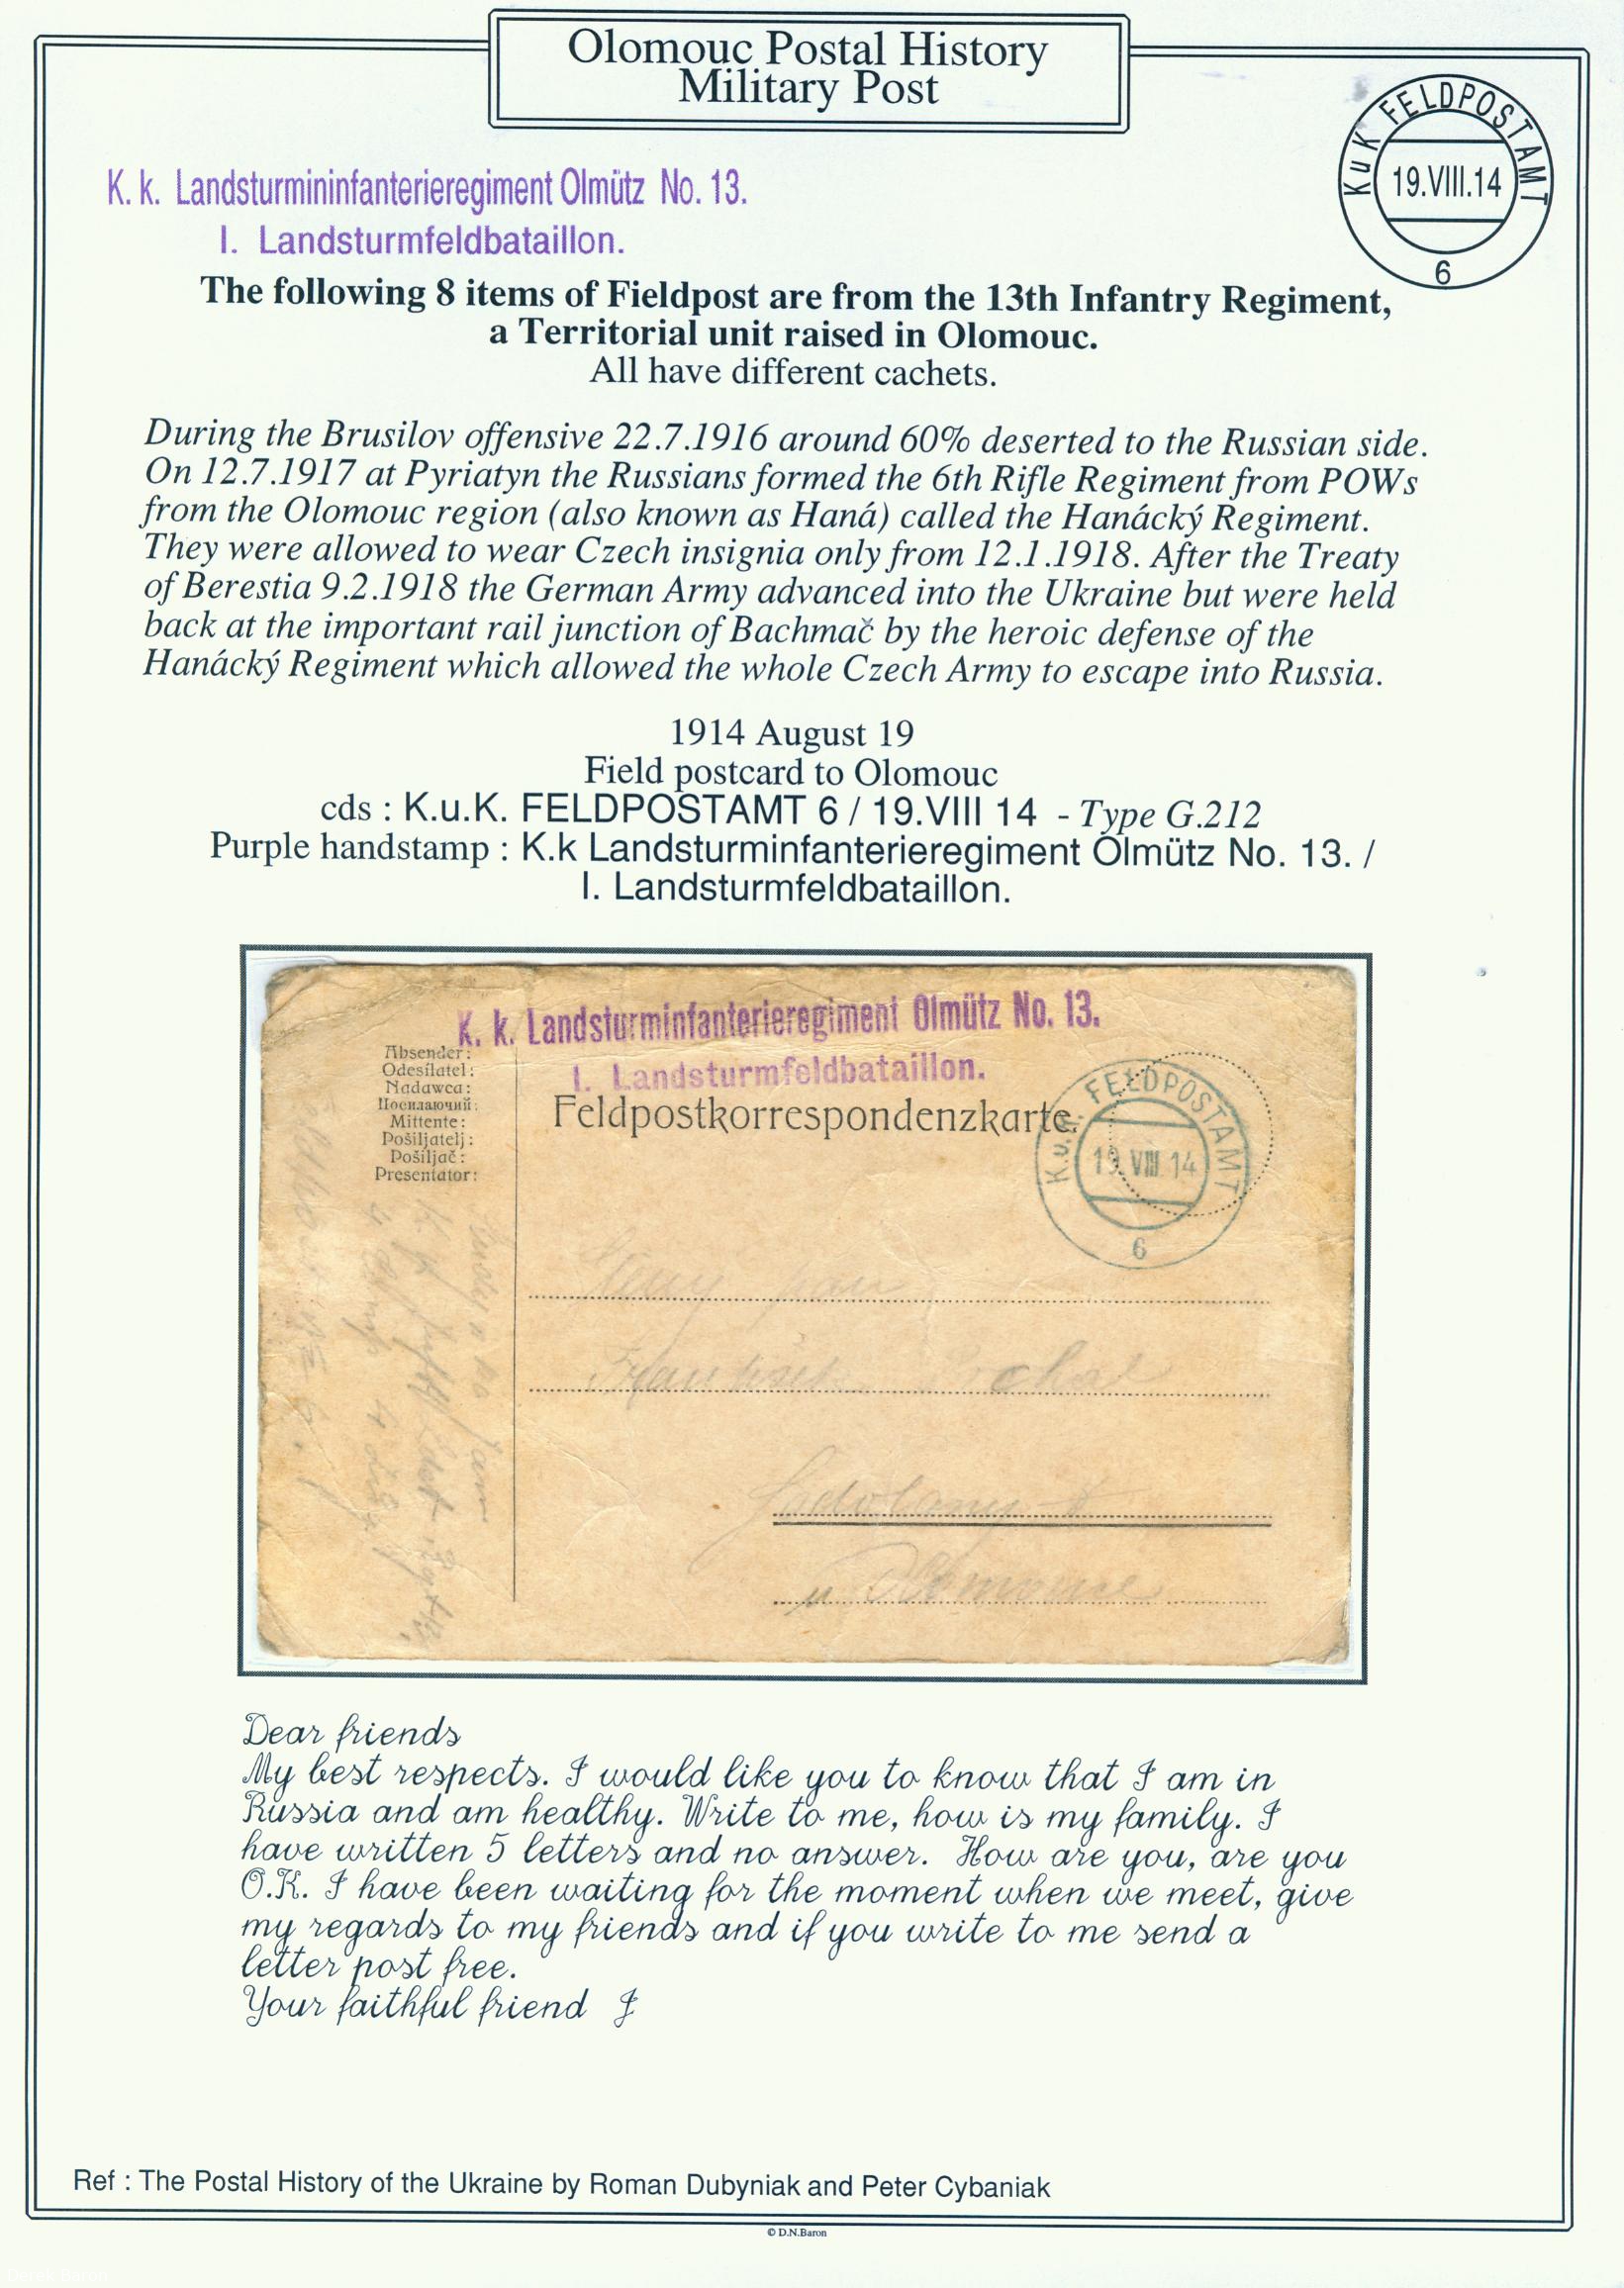 Olomouc Postal History
Military Post
KuK FELDPOSTAMT
19.VIII.14
6
K. k. Landsturmininfanterieregiment Olmütz No. 13.
I. Landsturmfeldbataillon.
The following 8 items of Fieldpost are from the 13th Infantry Regiment,
a Territorial unit raised in Olomouc.
All have different cachets.
During the Brusilov offensive 22.7.1916 around 60% deserted to the Russian side.
On 12.7.1917 at Pyriatyn the Russians formed the 6th Rifle Regiment from POWs
from the Olomouc region (also known as Haná) called the Hanácký Regiment.
They were allowed to wear Czech insignia only from 12.1.1918. After the Treaty
of Berestia 9.2.1918 the German Army advanced into the Ukraine but were held
back at the important rail junction of Bachmač by the heroic defense of the
Hanácký Regiment which allowed the whole Czech Army to escape into Russia.
1914 August 19
Field postcard to Olomouc
cds : K.u.K. FELDPOSTAMT 6 / 19.VIII 14 - Type G.212
Purple handstamp : K.k Landsturminfanterieregiment Olmütz No. 13. /
I. Landsturmfeldbataillon.
K. k. Landsturminfanterieregiment Olmütz No. 13.
I. Landsturmfeldbataillon.
Feldpostkorrespondenzkarte.
K.u.K. FELDPOSTAMT
19. VIII 14
6
Absender:
Odesílatel:
Nadawca:
Посилаючий:
Mittente:
Pošiljatelj:
Pošiljač:
Presentator:
pan
František
Dear friends
My best respects. I would like you to know that I am in
Russia and am healthy. Write to me, how is my family. I
have written 5 letters and no answer. How are you, are you
O.K. I have been waiting for the moment when we meet, give
my regards to my friends and if you write to me send a
letter post free.
Your faithful friend J
Ref : The Postal History of the Ukraine by Roman Dubyniak and Peter Cybaniak
© D.N.Baron
Derek Baron